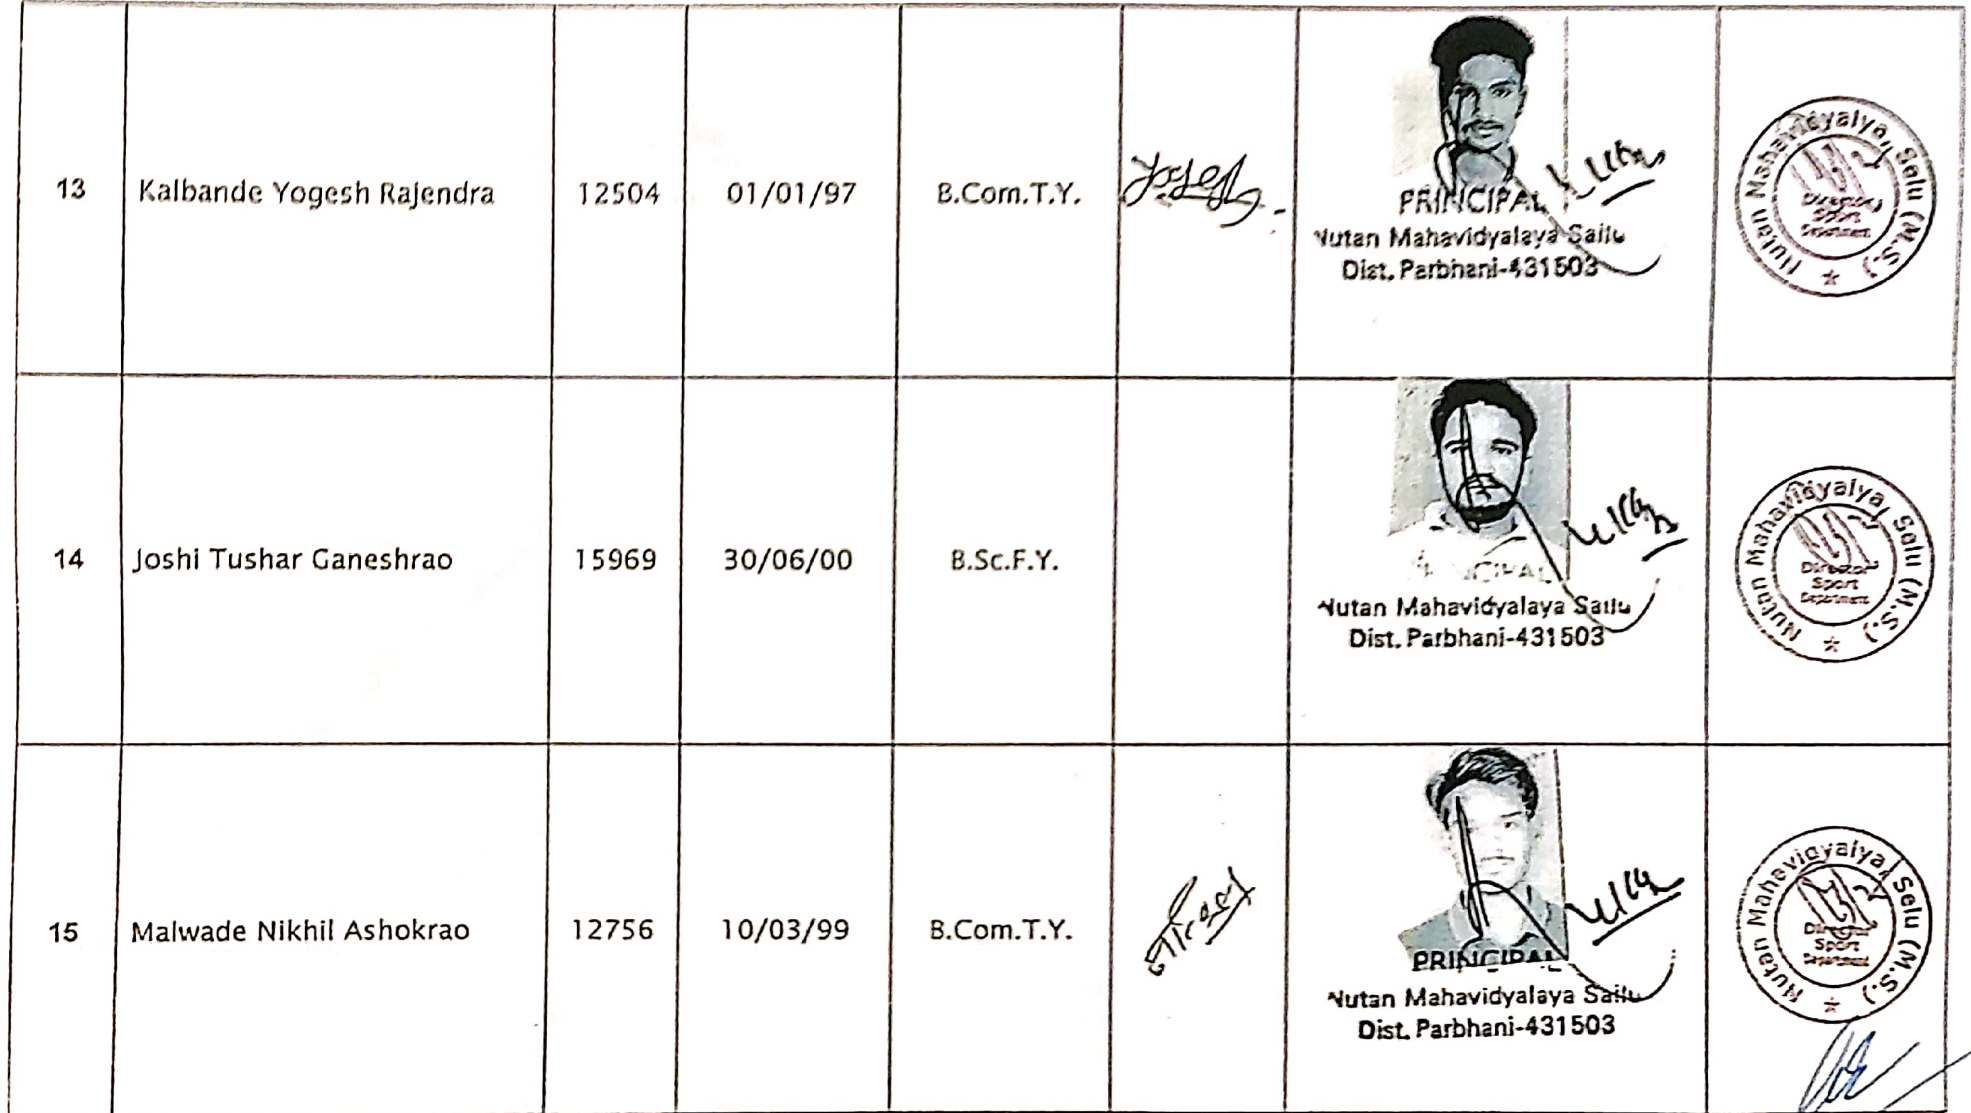 13 Kalbande Yogesh Rajendra 12504 01/01/97 B.Com.T.Y. Yogesh
PRINCIPAL
Nutan Mahavidyalaya Sailu
Dist. Parbhani-431503
Nutan Mahavidyalya, Selu (M.S.)
Director
Sport
Department
14 Joshi Tushar Ganeshrao 15969 30/06/00 B.Sc.F.Y.
PRINCIPAL
Nutan Mahavidyalaya Sailu
Dist. Parbhani-431503
Nutan Mahavidyalya, Selu (M.S.)
Director
Sport
Department
15 Malwade Nikhil Ashokrao 12756 10/03/99 B.Com.T.Y.
PRINCIPAL
Nutan Mahavidyalaya Sailu
Dist. Parbhani-431503
Nutan Mahavidyalya, Selu (M.S.)
Director
Sport
Department